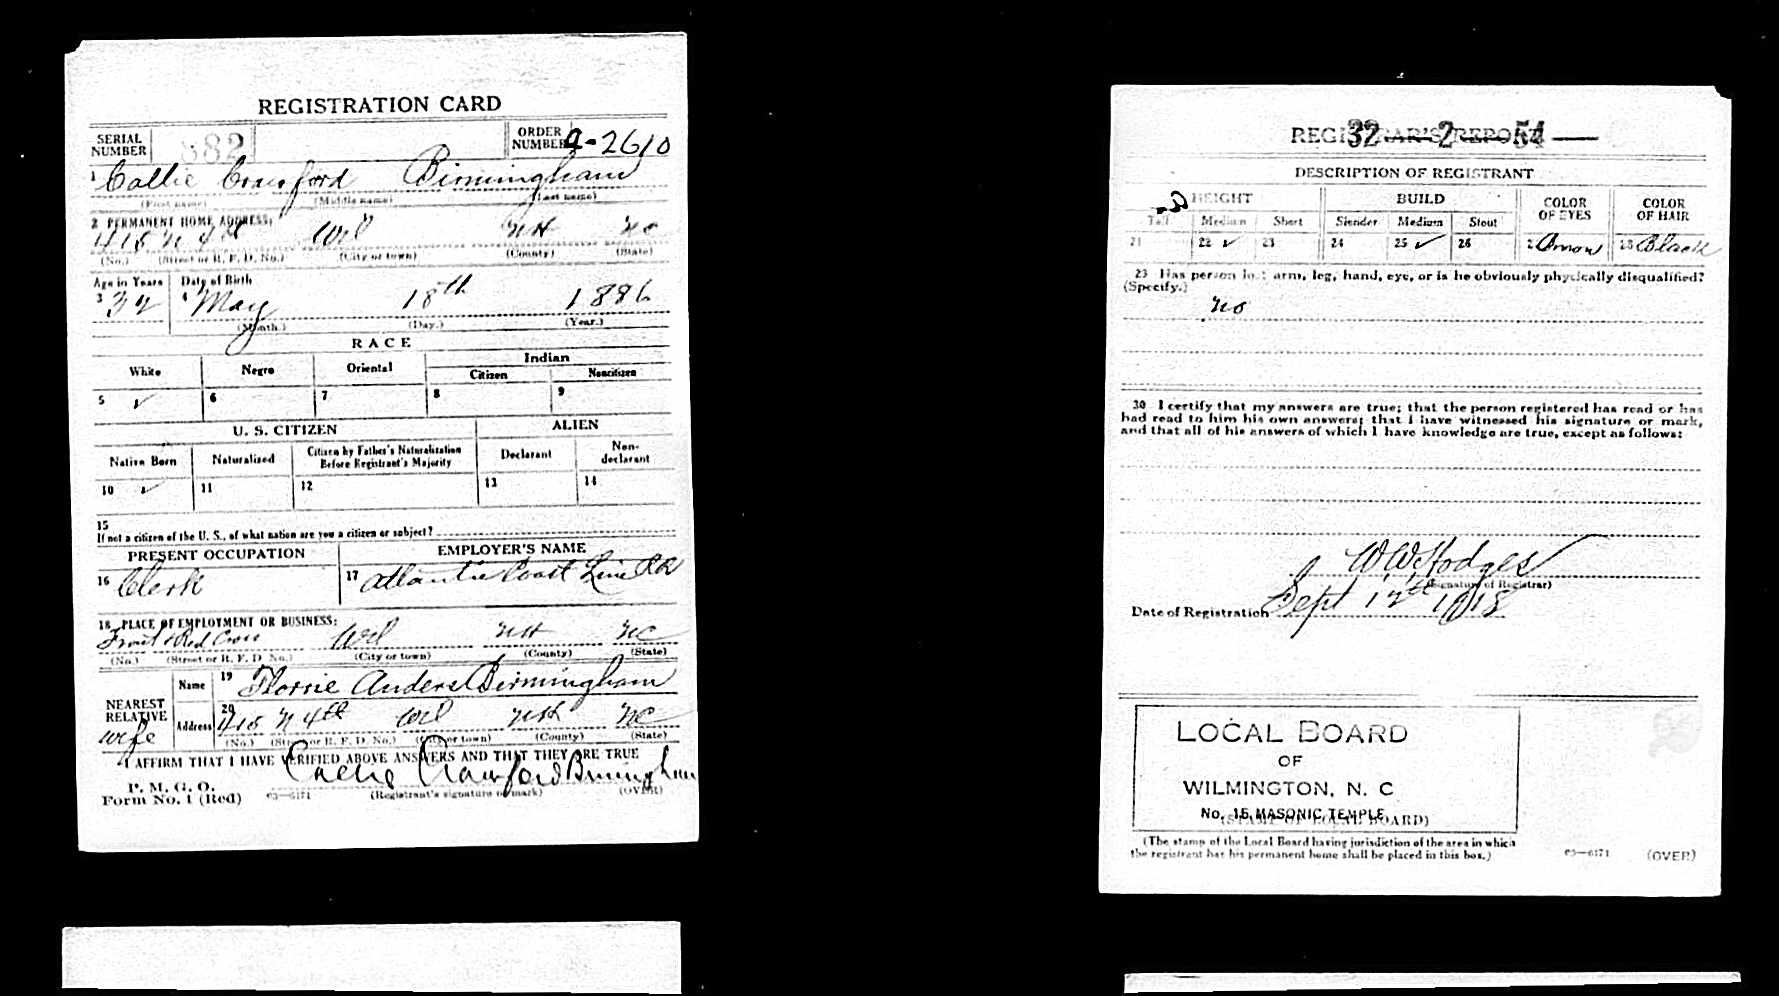 REGISTRATION CARD
SERIAL NUMBER 882 ORDER NUMBER a-2610
1 Callie Crawford Birmingham
(First name) (Middle name) (Last name)
2 PERMANENT HOME ADDRESS:
415 N 4th Wil NH NC
(No.) (Street or R. F. D. No.) (City or town) (County) (State)
Age in Years Date of Birth
3 32 4 May 18th 1886
(Month.) (Day.) (Year.)
RACE
White Negro Oriental Indian
Citizen Noncitizen
5 ✓ 6 7 8 9
U. S. CITIZEN ALIEN
Native Born Naturalized Citizen by Father's Naturalization Before Registrant's Majority Declarant Non-declarant
10 ✓ 11 12 13 14
15
If not a citizen of the U. S., of what nation are you a citizen or subject?
PRESENT OCCUPATION EMPLOYER'S NAME
16 Clerk 17 Atlantic Coast Line RR
18 PLACE OF EMPLOYMENT OR BUSINESS:
Front & Red Cross Wil NH NC
(No.) (Street or R. F. D. No.) (City or town) (County) (State)
NEAREST RELATIVE Name 19 Florrie Anders Birmingham
wife Address 20 415 N 4th Wil NH NC
(No.) (Street or R. F. D. No.) (City or town) (County) (State)
I AFFIRM THAT I HAVE VERIFIED ABOVE ANSWERS AND THAT THEY ARE TRUE
Callie Crawford Birmingham
P. M. G. O.
Form No. 1 (Red) 03—6171 (Registrant's signature or mark) (OVER)
REGISTRAR'S REPORT
32 2 54
DESCRIPTION OF REGISTRANT
HEIGHT BUILD COLOR OF EYES COLOR OF HAIR
Tall Medium Short Slender Medium Stout
21 22 ✓ 23 24 25 ✓ 26 27 Brown 28 Black
29 Has person lost arm, leg, hand, eye, or is he obviously physically disqualified?
(Specify.)
no
30 I certify that my answers are true; that the person registered has read or has
had read to him his own answers; that I have witnessed his signature or mark,
and that all of his answers of which I have knowledge are true, except as follows:
W.W. Hodges
(Signature of Registrar)
Date of Registration Sept 12th 1918
LOCAL BOARD
OF
WILMINGTON, N. C
No. 15 MASONIC TEMPLE
(STAMP OF LOCAL BOARD)
(The stamp of the Local Board having jurisdiction of the area in which
the registrant has his permanent home shall be placed in this box.)
03—6171 (OVER)